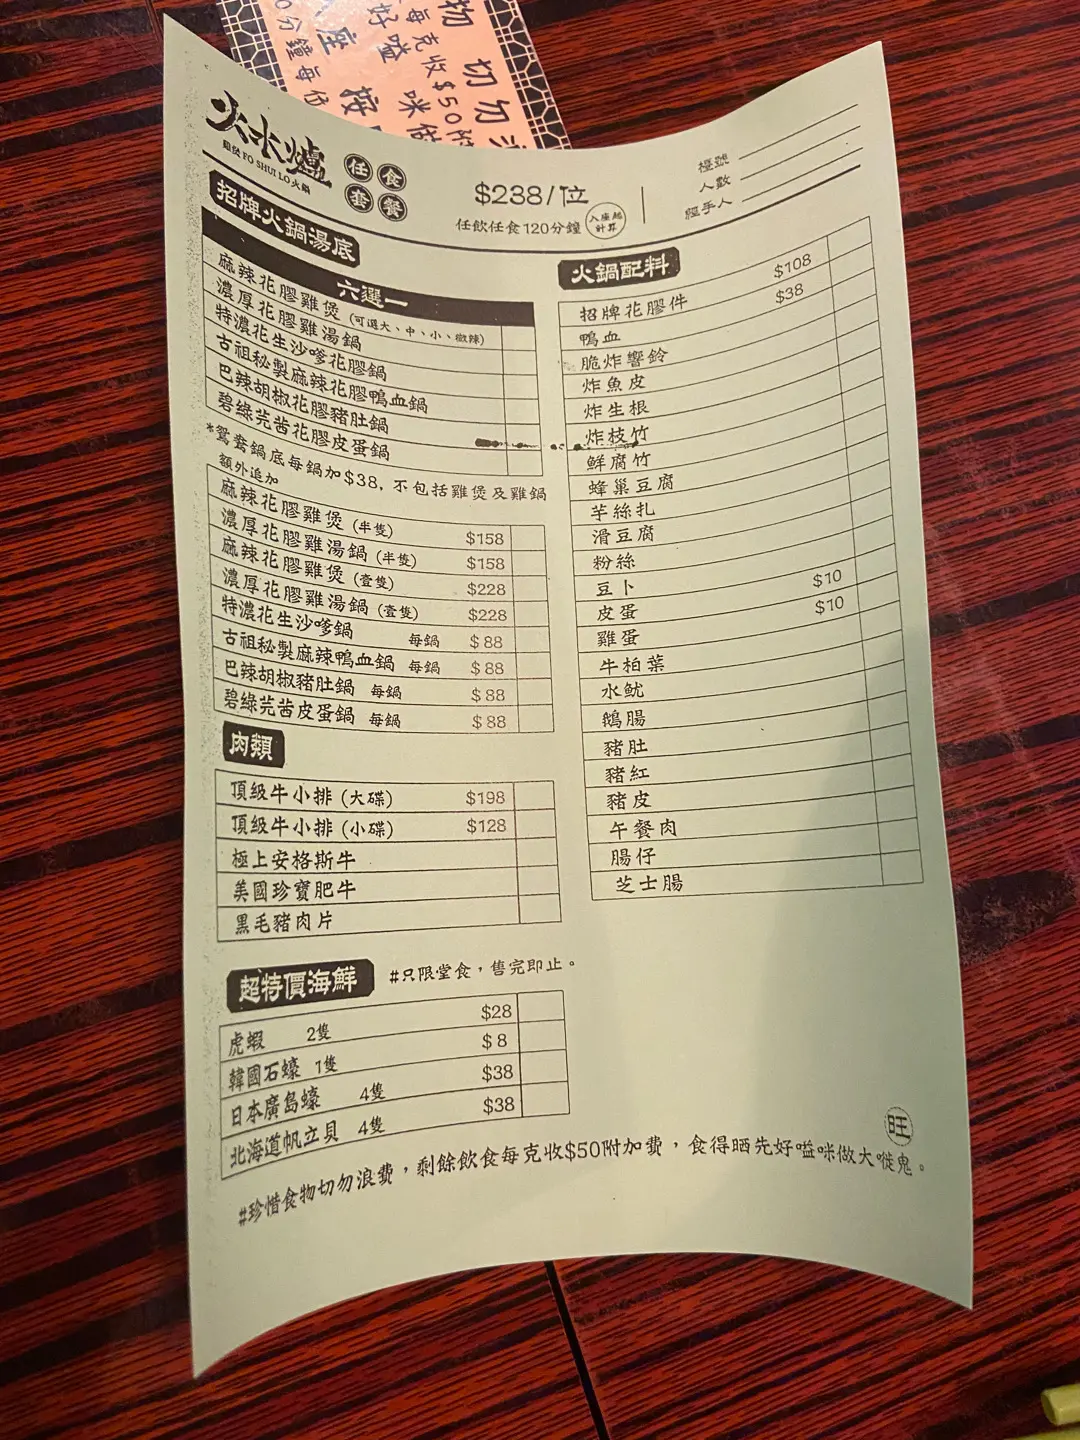 物 切勿
每克收$50附
好嗌 咪做
座 按
0分鐘每位
火水爐
雞煲 FO SHUI LO 火鍋
任食套餐
$238/位
任飲任食120分鐘 入座起計算
檯號
人數
經手人
招牌火鍋湯底
六選一
麻辣花膠雞煲 (可選大、中、小、微辣)
濃厚花膠雞湯鍋
特濃花生沙嗲花膠鍋
古祖秘製麻辣花膠鴨血鍋
巴辣胡椒花膠豬肚鍋
碧綠芫茜花膠皮蛋鍋
*鴛鴦鍋底每鍋加$38, 不包括雞煲及雞鍋
額外追加
麻辣花膠雞煲 (半隻) $158
濃厚花膠雞湯鍋 (半隻) $158
麻辣花膠雞煲 (壹隻) $228
濃厚花膠雞湯鍋 (壹隻) $228
特濃花生沙嗲鍋 每鍋 $88
古祖秘製麻辣鴨血鍋 每鍋 $88
巴辣胡椒豬肚鍋 每鍋 $88
碧綠芫茜皮蛋鍋 每鍋 $88
肉類
頂級牛小排 (大碟) $198
頂級牛小排 (小碟) $128
極上安格斯牛
美國珍寶肥牛
黑毛豬肉片
超特價海鮮 #只限堂食，售完即止。
虎蝦 2隻 $28
韓國石蠔 1隻 $8
日本廣島蠔 4隻 $38
北海道帆立貝 4隻 $38
火鍋配料
招牌花膠件 $108
鴨血 $38
脆炸響鈴
炸魚皮
炸生根
炸枝竹
鮮腐竹
蜂巢豆腐
芋絲扎
滑豆腐
粉絲
豆卜
皮蛋 $10
雞蛋 $10
牛柏葉
水魷
鵝腸
豬肚
豬紅
豬皮
午餐肉
腸仔
芝士腸
旺
#珍惜食物切勿浪費，剩餘飲食每克收$50附加費，食得晒先好嗌咪做大嘥鬼。